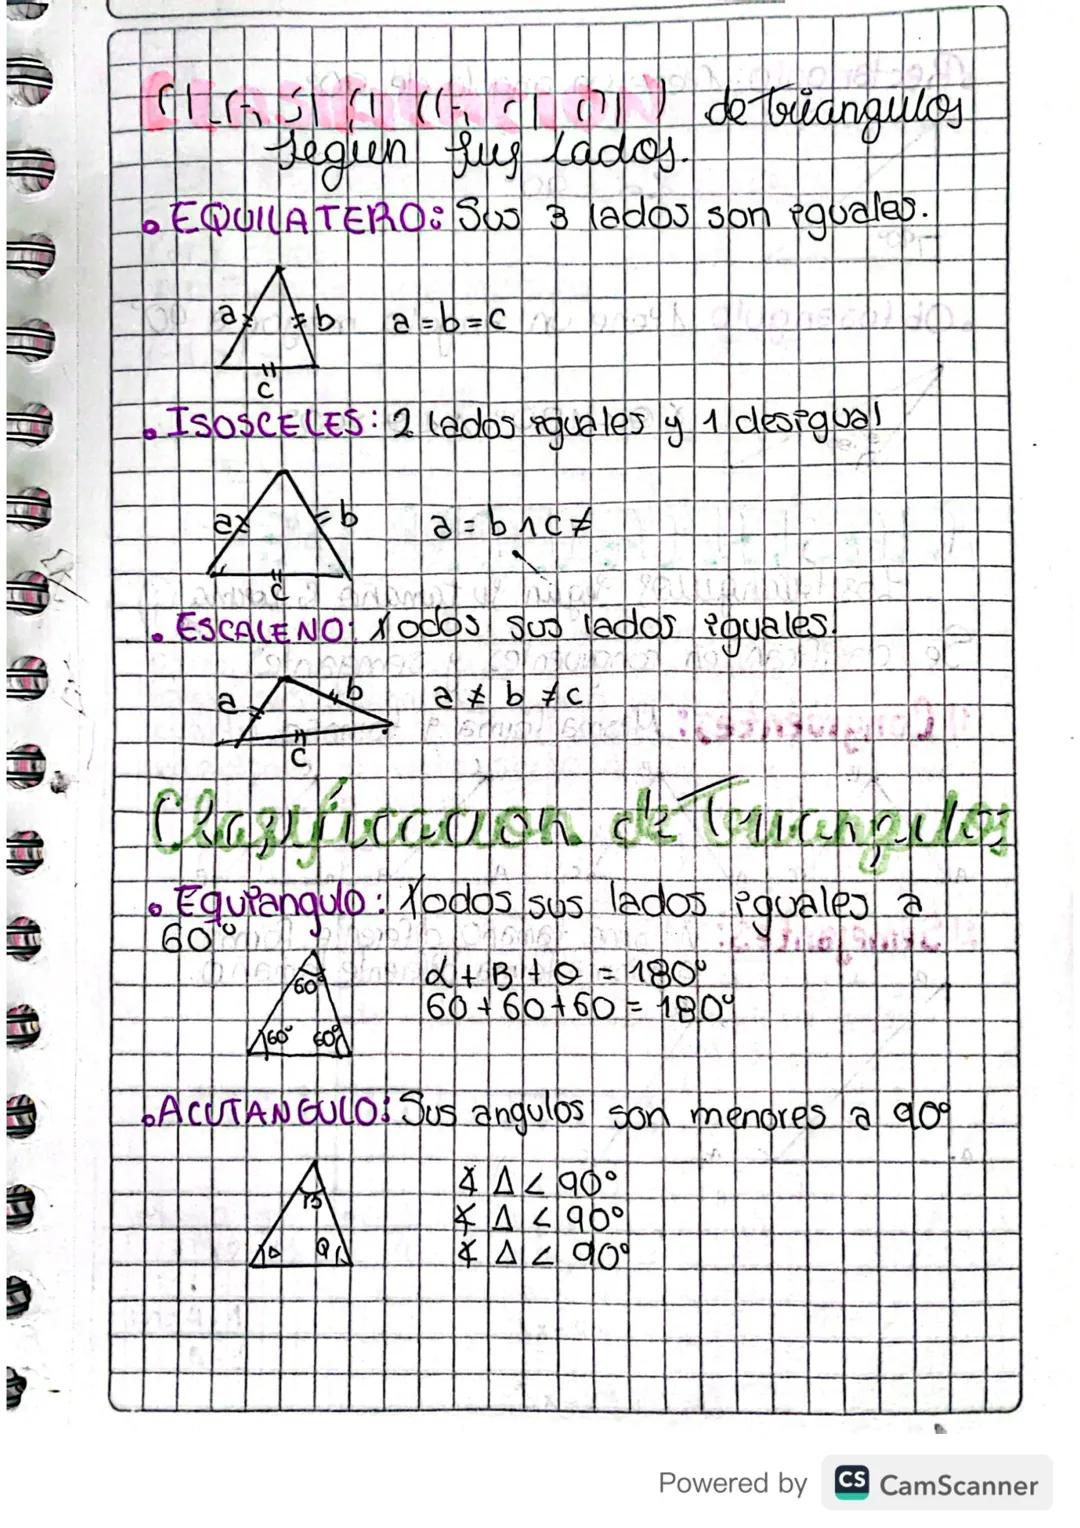 CLASIFICACION de triangulos
segun sus lados.
• EQUILATERO: Sus 3 lados son iguales.
a b a=b=c
c
• ISOSCELES: 2 lados iguales y 1 desigual
a b a = b ∧ c ≠
c
• ESCALENO: Todos sus lados iguales.
a b a ≠ b ≠ c
c
Clasificacion de Triangulos
• Equiangulo: Todos sus lados iguales a
60°
60° α + B + θ = 180°
60 + 60 + 60 = 180°
60° 60°
• ACUTANGULO: Sus angulos son menores a 90°
∡ Δ < 90°
B ∡ Δ < 90°
∡ Δ < 90°
Powered by CS CamScanner